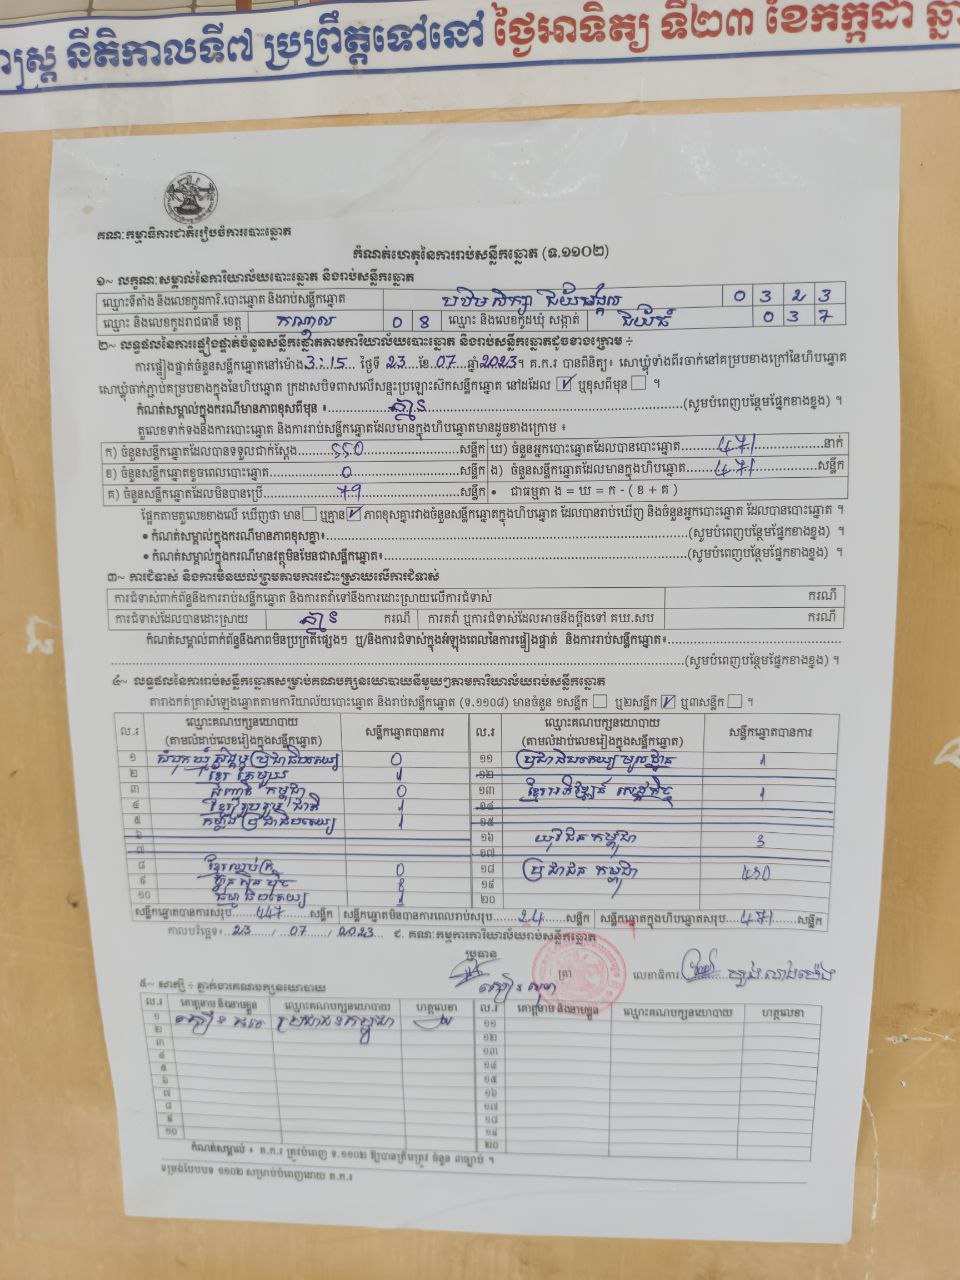 ស្ត្រ នីតិកាលទី៧ ប្រព្រឹត្តទៅនៅ ថ្ងៃអាទិត្យ ទី២៣ ខែកក្កដា ឆ្នាំ
គណៈកម្មាធិការជាតិរៀបចំការបោះឆ្នោត
កំណត់ហេតុនៃការរាប់សន្លឹកឆ្នោត (ទ.១១០២)
១~ លក្ខណៈសម្គាល់នៃការិយាល័យបោះឆ្នោត និងរាប់សន្លឹកឆ្នោត
ឈ្មោះទីតាំង និងលេខកូដការិ.បោះឆ្នោត និងរាប់សន្លឹកឆ្នោត បឋមសិក្សា ជ័យមង្គល 0 3 2 3
ឈ្មោះ និងលេខកូដរាជធានី ខេត្ត កណ្តាល 0 8 ឈ្មោះ និងលេខកូដឃុំ សង្កាត់ ជ័យធំ 0 3 7
២~ លទ្ធផលនៃការផ្ទៀងផ្ទាត់ចំនួនសន្លឹកឆ្នោតតាមការិយាល័យបោះឆ្នោត និងរាប់សន្លឹកឆ្នោតដូចខាងក្រោម ÷
ការផ្ទៀងផ្ទាត់ចំនួនសន្លឹកឆ្នោតនៅម៉ោង 3:15 ថ្ងៃទី 23 ខែ 07 ឆ្នាំ 2023។ គ.ក.រ បានពិនិត្យ៖ សោឃ្លុំទាំងពីរចាក់នៅគម្របខាងក្រៅនៃហិបឆ្នោត
សោឃ្លុំចាក់ភ្ជាប់គម្របខាងក្នុងនៃហិបឆ្នោត ក្រដាសបិទពាសលើសន្ទះប្រឡោះស៊កសន្លឹកឆ្នោត នៅដដែល ☑ ឬខុសពីមុន ☐ ។
កំណត់សម្គាល់ក្នុងករណីមានភាពខុសពីមុន ៖ គ្មាន (សូមបំពេញបន្ថែមផ្នែកខាងខ្នង) ។
តួលេខទាក់ទងនឹងការបោះឆ្នោត និងការរាប់សន្លឹកឆ្នោតដែលមានក្នុងហិបឆ្នោតមានដូចខាងក្រោម ៖
ក) ចំនួនសន្លឹកឆ្នោតដែលបានទទួលជាក់ស្តែង 550 សន្លឹក ឃ) ចំនួនអ្នកបោះឆ្នោតដែលបានបោះឆ្នោត 471 នាក់
ខ) ចំនួនសន្លឹកឆ្នោតខូចពេលបោះឆ្នោត 0 សន្លឹក ង) ចំនួនសន្លឹកឆ្នោតដែលមានក្នុងហិបឆ្នោត 471 សន្លឹក
គ) ចំនួនសន្លឹកឆ្នោតដែលមិនបានប្រើ 79 សន្លឹក • ជាធម្មតា ង = ឃ = ក - ( ខ + គ )
ផ្អែកតាមតួលេខខាងលើ ឃើញថា មាន ☐ ឬគ្មាន ☑ ភាពខុសគ្នារវាងចំនួនសន្លឹកឆ្នោតក្នុងហិបឆ្នោត ដែលបានរាប់ឃើញ និងចំនួនអ្នកបោះឆ្នោត ដែលបានបោះឆ្នោត ។
• កំណត់សម្គាល់ក្នុងករណីមានភាពខុសគ្នា៖ (សូមបំពេញបន្ថែមផ្នែកខាងខ្នង) ។
• កំណត់សម្គាល់ក្នុងករណីមានវត្ថុមិនមែនជាសន្លឹកឆ្នោត៖ (សូមបំពេញបន្ថែមផ្នែកខាងខ្នង) ។
៣~ ការជំទាស់ និងការមិនយល់ព្រមតាមការដោះស្រាយលើការជំទាស់
ការជំទាស់ពាក់ព័ន្ធនឹងការរាប់សន្លឹកឆ្នោត និងការតវ៉ាទៅនឹងការដោះស្រាយលើការជំទាស់ ករណី
ការជំទាស់ដែលបានដោះស្រាយ គ្មាន ករណី ការតវ៉ា ឬការជំទាស់ដែលអាចនឹងប្តឹងទៅ គឃ.សប ករណី
កំណត់សម្គាល់ពាក់ព័ន្ធនឹងភាពមិនប្រក្រតីផ្សេងៗ ឬ/និងការជំទាស់ក្នុងអំឡុងពេលនៃការផ្ទៀងផ្ទាត់ និងការរាប់សន្លឹកឆ្នោត៖
(សូមបំពេញបន្ថែមផ្នែកខាងខ្នង) ។
៤~ លទ្ធផលនៃការរាប់សន្លឹកឆ្នោតសម្រាប់គណបក្សនយោបាយនីមួយៗតាមការិយាល័យរាប់សន្លឹកឆ្នោត
តារាងកត់ត្រាសំឡេងឆ្នោតតាមការិយាល័យបោះឆ្នោត និងរាប់សន្លឹកឆ្នោត (ទ.១១០៨) មានចំនួន ១សន្លឹក ☐ ឬ២សន្លឹក ☑ ឬ៣សន្លឹក ☐ ។
ល.រ ឈ្មោះគណបក្សនយោបាយ (តាមលំដាប់លេខរៀងក្នុងសន្លឹកឆ្នោត) សន្លឹកឆ្នោតបានការ ល.រ ឈ្មោះគណបក្សនយោបាយ (តាមលំដាប់លេខរៀងក្នុងសន្លឹកឆ្នោត) សន្លឹកឆ្នោតបានការ
១ សំបុកឃ្មុំសង្គមប្រជាធិបតេយ្យ 0 ១១ ប្រជាធិបតេយ្យមូលដ្ឋាន 1
២ ខ្មែរតែមួយ 1 ១២
៣ ជំនាន់ កម្ពុជា 0 ១៣ ខ្មែរអភិវឌ្ឍន៍សេដ្ឋកិច្ច 1
៤ ខ្មែររួបរួមជាតិ 1 ១៤
៥ កម្លាំងប្រជាធិបតេយ្យ 1 ១៥
៦ ១៦ យុវជនកម្ពុជា 3
៧ ១៧
៨ ខ្មែរឈប់ក្រ 0 ១៨ ប្រជាជនកម្ពុជា 430
៩ ហ្វ៊ុនស៊ិនប៉ិច 8 ១៩
១០ ធម្មាធិបតេយ្យ 1 ២០
សន្លឹកឆ្នោតបានការសរុប 447 សន្លឹក សន្លឹកឆ្នោតមិនបានការពេលរាប់សរុប 24 សន្លឹក សន្លឹកឆ្នោតក្នុងហិបឆ្នោតសរុប 471 សន្លឹក
កាលបរិច្ឆេទ៖ 23 / 07 / 2023 ៩. គណៈកម្មការការិយាល័យរាប់សន្លឹកឆ្នោត
ប្រធាន
ត្រា លេខាធិការ
៥~ សាក្សី ÷ ភ្នាក់ងារគណបក្សនយោបាយ
ល.រ គោត្តនាម និងនាមខ្លួន ឈ្មោះគណបក្សនយោបាយ ហត្ថលេខា ល.រ គោត្តនាម និងនាមខ្លួន ឈ្មោះគណបក្សនយោបាយ ហត្ថលេខា
១ ប្រជាជនកម្ពុជា ១១
២ ១២
៣ ១៣
៤ ១៤
៥ ១៥
៦ ១៦
៧ ១៧
៨ ១៨
៩ ១៩
១០ ២០
កំណត់សម្គាល់ ៖ គ.ក.រ ត្រូវបំពេញ ទ.១១០២ ឱ្យបានត្រឹមត្រូវ ចំនួន ៣ច្បាប់ ។
ទម្រង់បែបបទ ១១០២ សម្រាប់បំពេញដោយ គ.ក.រ